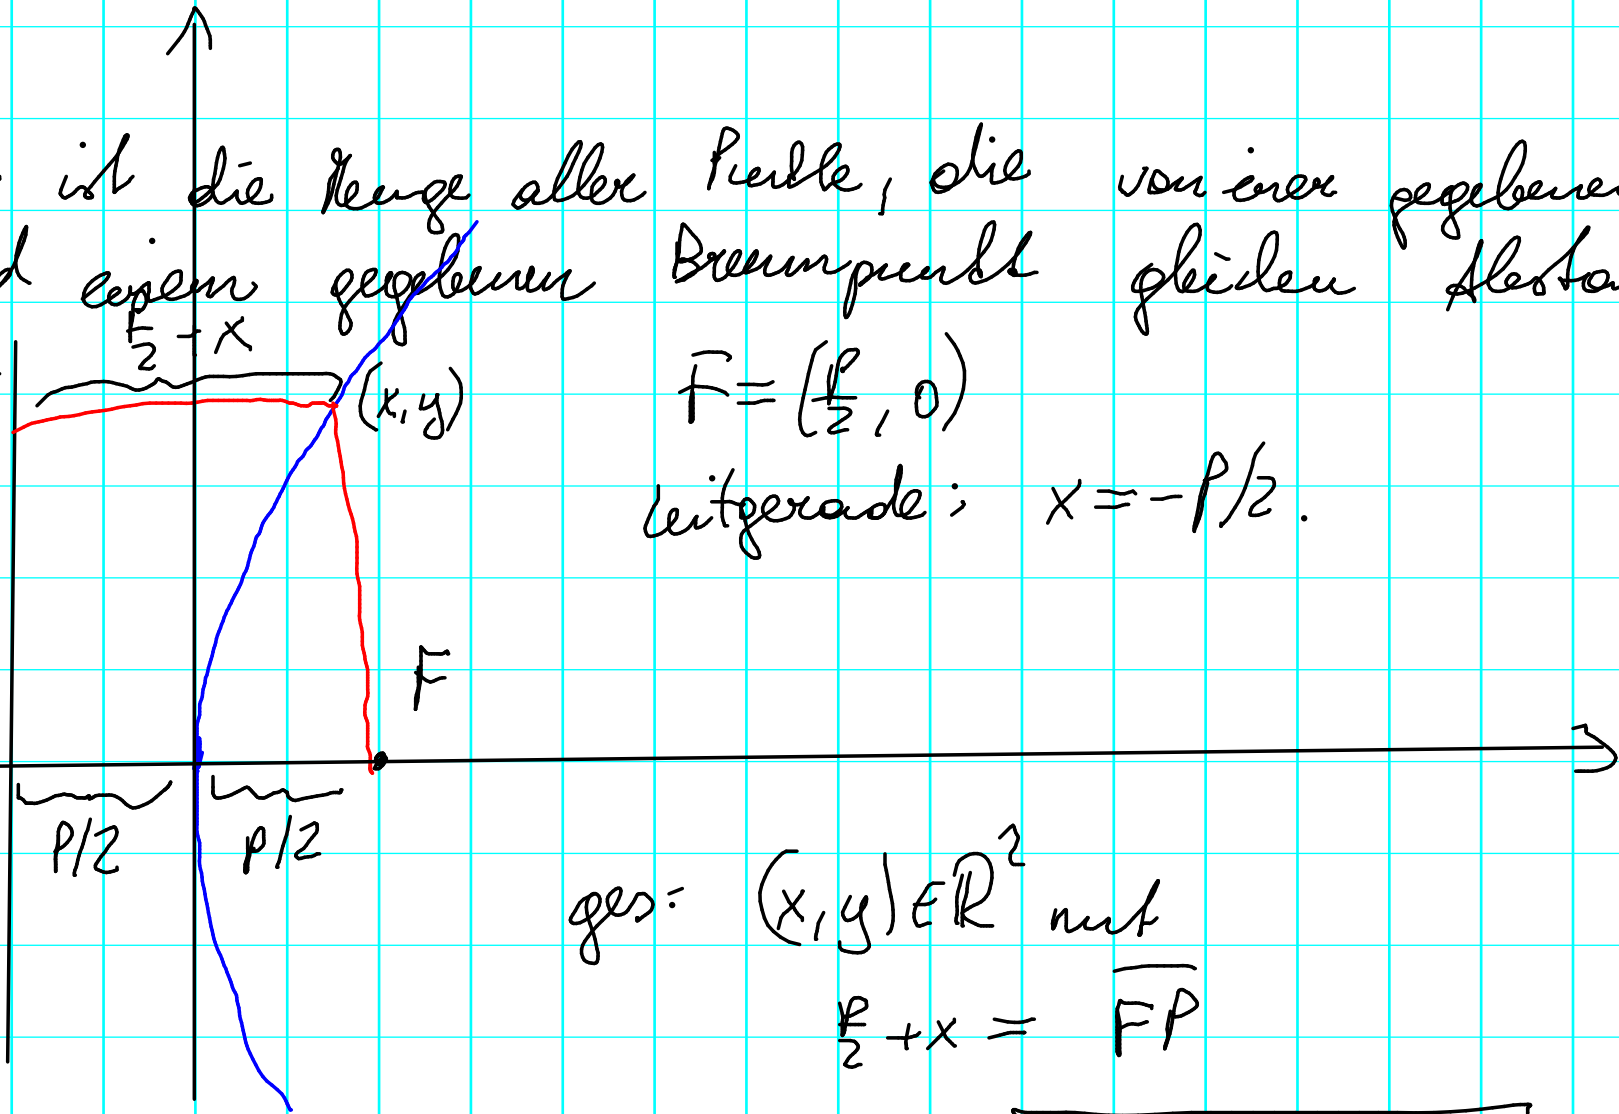 ist die Menge aller Punkte, die von einer gegebenen
d einem gegebenen Brennpunkt gleichen Absta
P/2 + x
(x,y)
F = (P/2, 0)
Leitgerade: x = -P/2.
F
P/2 P/2
ges: (x,y) ∈ ℝ² mit
P/2 + x = \overline{FP}